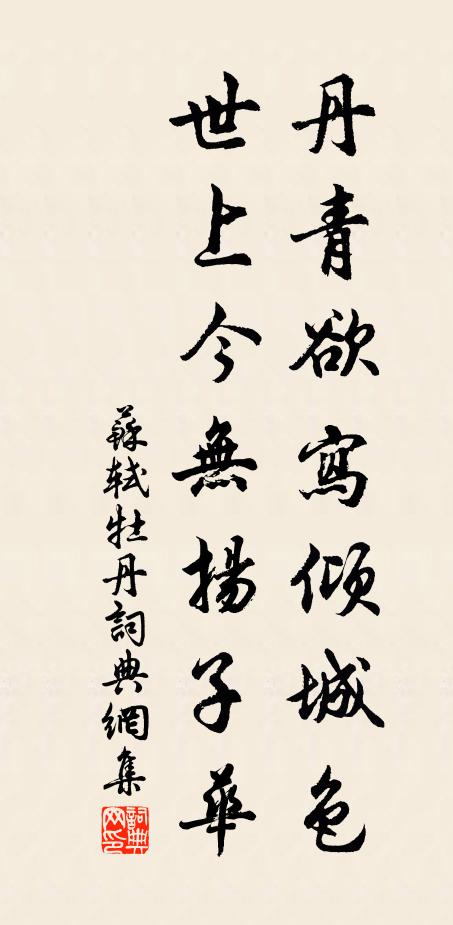 丹青欲寫傾城色
世上今無揚子華
蘇軾牡丹詞典網集
詞典網印